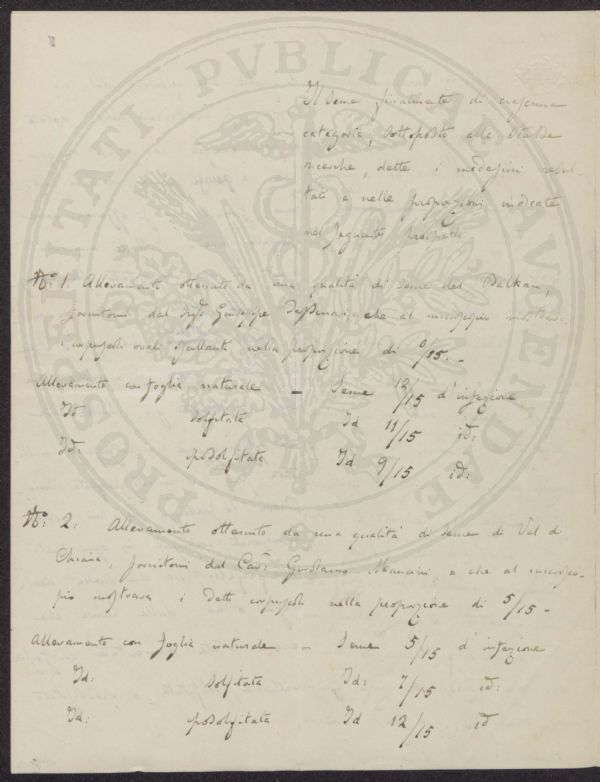 PROSPERITATI PVBLICAE AVGENDAE
Il Seme finalmente di ciascuna
categoria, sottoposto alle stesse
ricerche, dette i medesimi resul-
tati e nelle proporzioni indicate
nel seguente prospetto
N.º 1. Allevamento ottenuto da una qualità di Seme del Balkan,
fornitomi dal Sigr. Giuseppe che al microscopio mostrava
i corpuscoli ovali nella proporzione di 0/15. -
Allevamento con foglia naturale - Seme 12/15 d'infezione
Id: solfitata Id 11/15 id:
Id: iposolfitata Id 9/15 id:
N.º 2: Allevamento ottenuto da una qualità di Seme di Val di
Chiana, fornitomi dal Cav. Girolamo Mancini, e che al microsco-
pio mostrava i detti corpuscoli nella proporzione di 5/15 -
Allevamento con foglia naturale - Seme 5/15 d'infezione
Id: solfitata Id: 7/15 id:
Id: iposolfitata Id 12/15 id